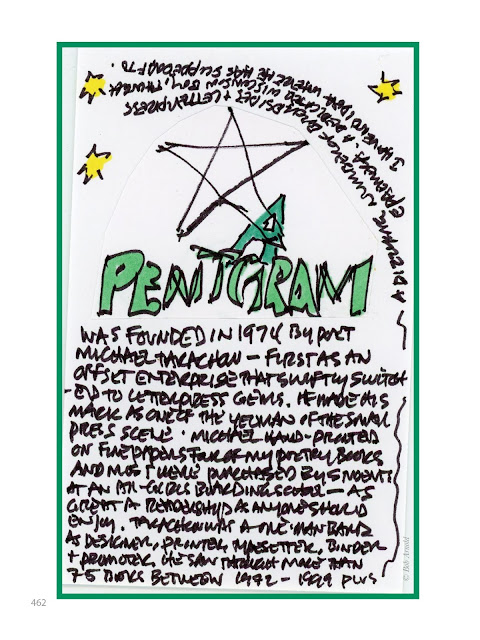 PENTAGRAM
WAS FOUNDED IN 1974 BY POET
MICHAEL TARACHOW — FIRST AS AN
OFFSET ENTERPRISE THAT SWIFTLY SWITCH
-ED TO LETTERPRESS GEMS. HE MADE HIS
MARK AS ONE OF THE YEOMAN OF THE SMALL
PRESS SCENE. MICHAEL HAND-PRINTED
ON FINE PAPERS FOUR OF MY POETRY BOOKS
AND MOST WERE PURCHASED BY STUDENTS
AT AN ALL-GIRLS BOARDING SCHOOL — AS
GREAT A READERSHIP AS ANYONE SHOULD
ENJOY. TARACHOW WAS A ONE-MAN BAND
AS DESIGNER, PRINTER, TYPESETTER, BINDER
+ PROMOTER. HE SAW THROUGH MORE THAN
75 BOOKS BETWEEN 1972 – 1999 PLUS
A DIZZYING NUMBER OF BROADSIDES + LETTERPRESS
EPHEMERA. A DEDICATED WISCONSIN BOY, THOUGH
I HAVE NO IDEA WHERE HE WAS
© Bob Arnold
462